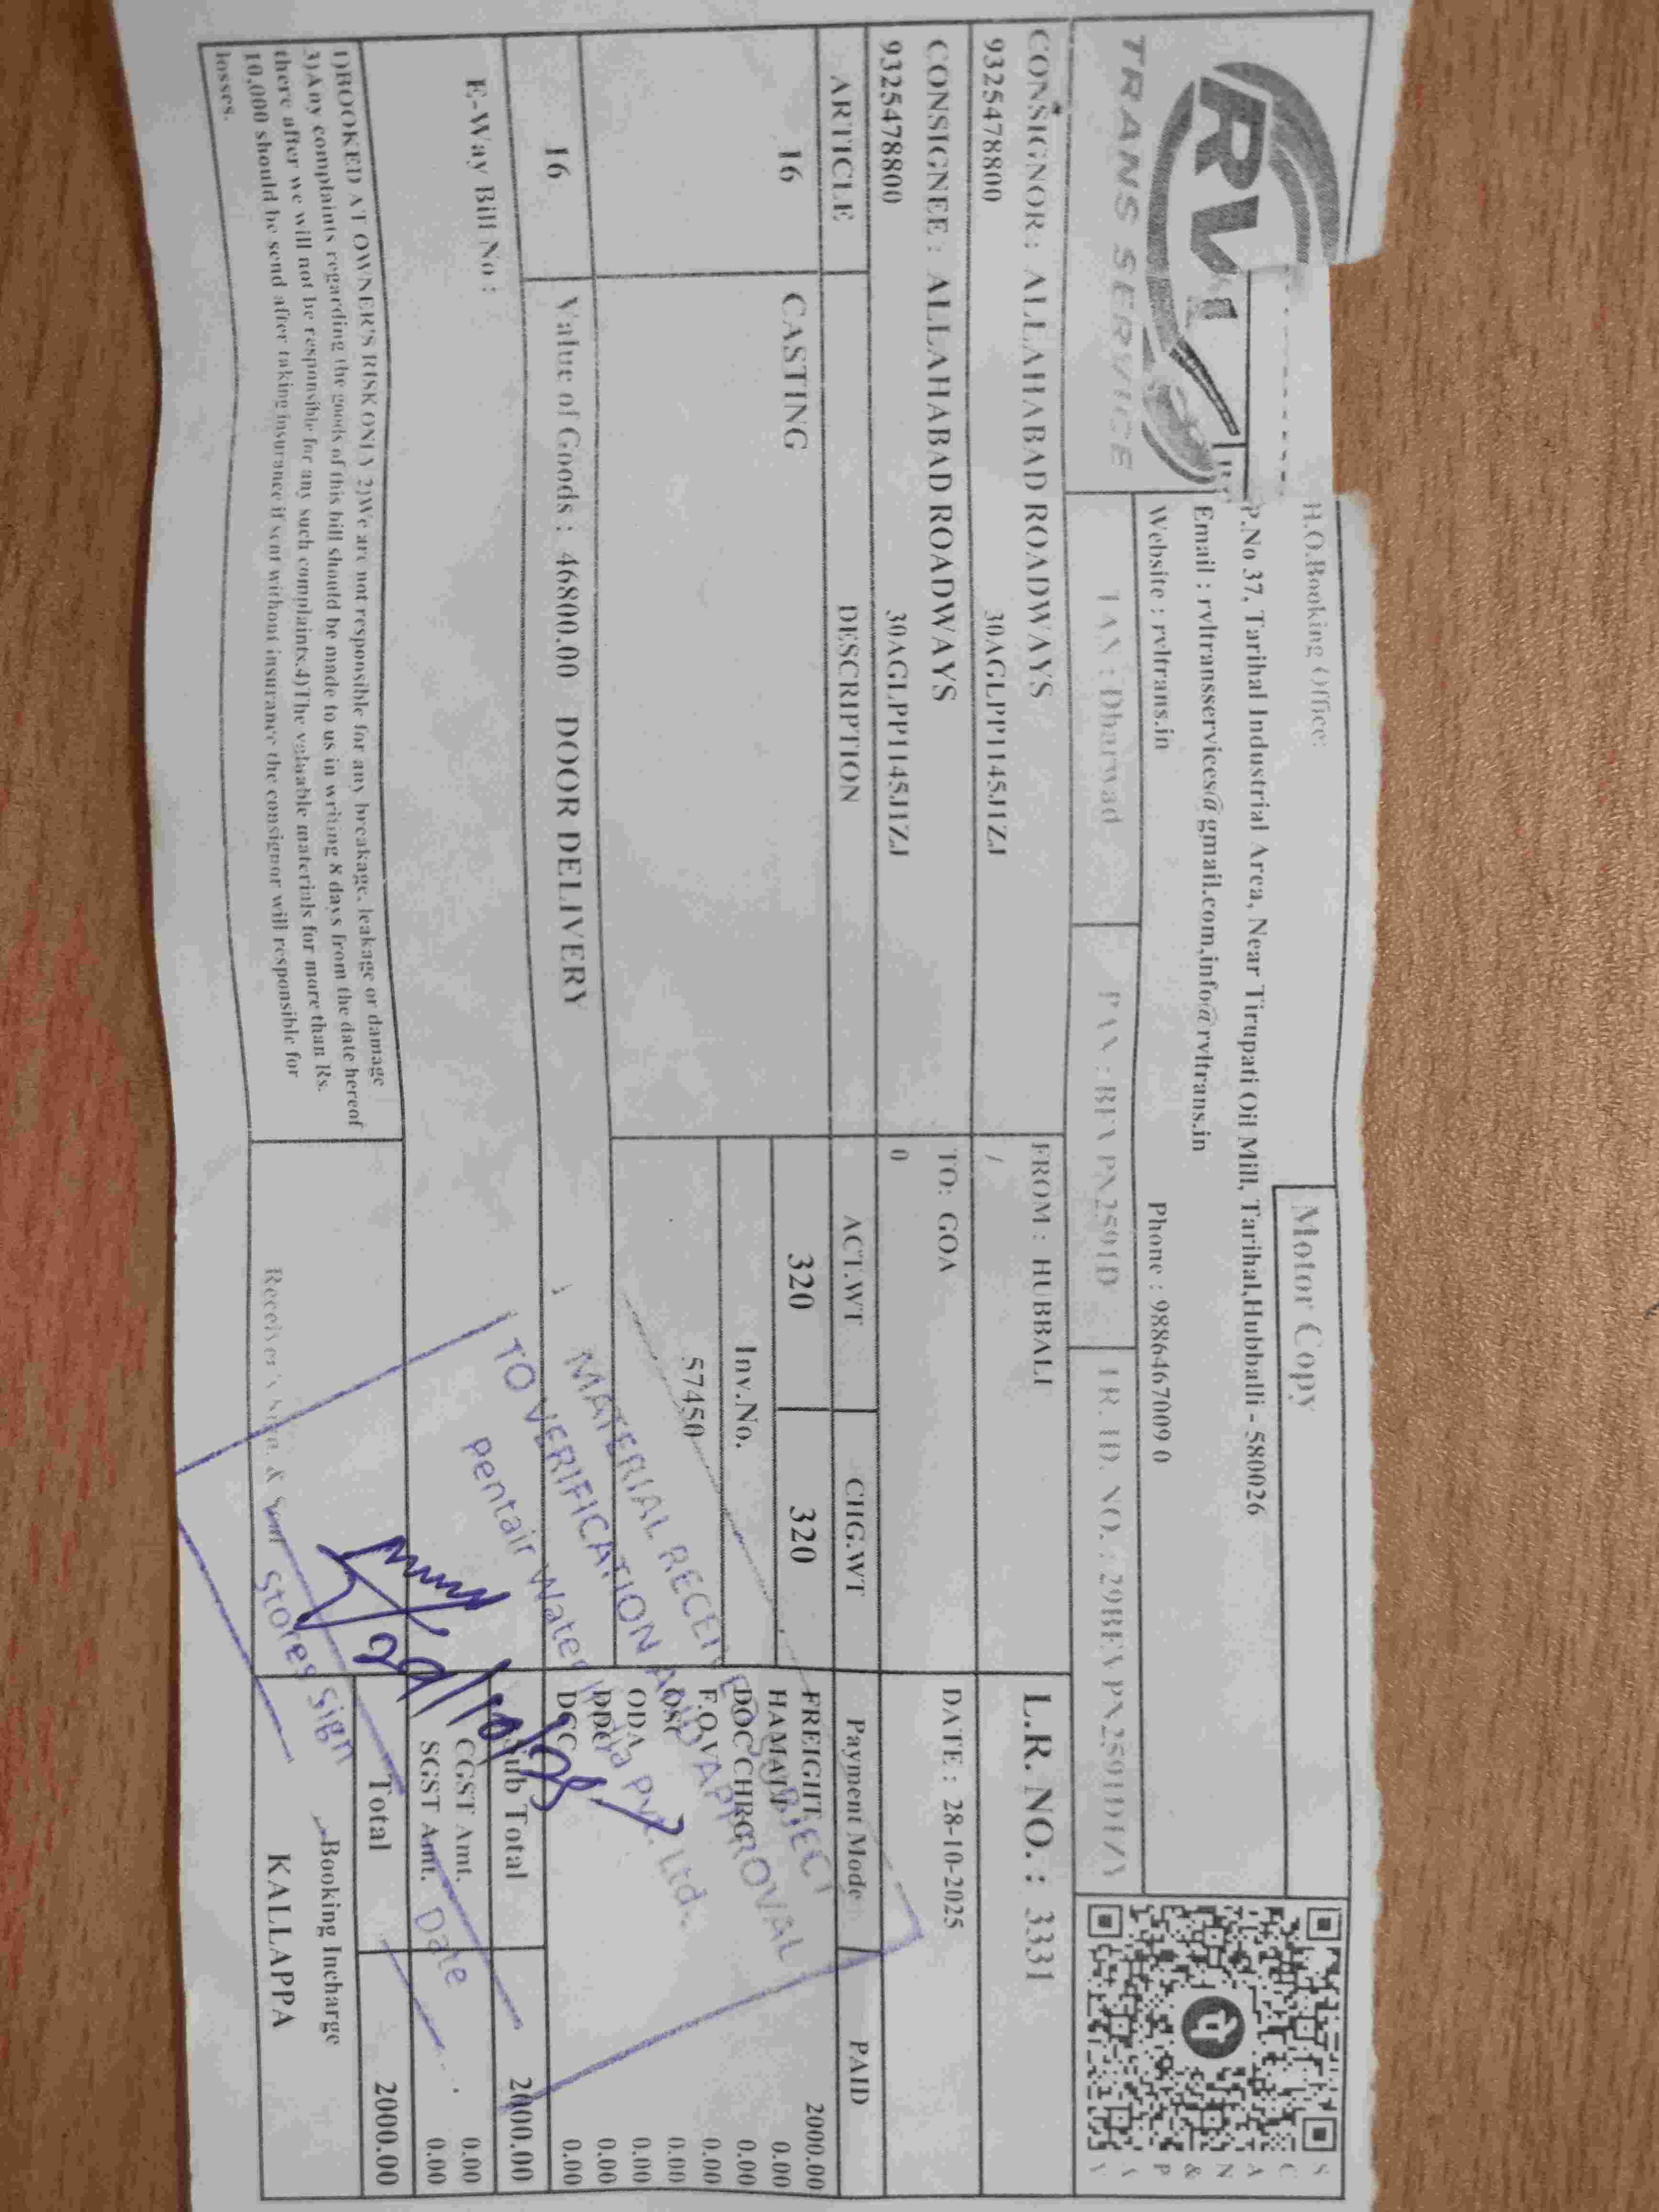 RVL
TRANS SERVICE
Motor Copy
H.O.Booking Office:
P.No 37, Tarihal Industrial Area, Near Tirupati Oil Mill, Tarihal,Hubballi - 580026
Email : rvltransservices@gmail.com,info@rvltrans.in
Website : rvltrans.in Phone : 9886467009 0
SCAN & PAY
Dharwad
CONSIGNOR : ALLAHABAD ROADWAYS
9325478800 30AGLPP1145J1ZJ
FROM : HUBBALI
/
L.R. NO. : 3331
CONSIGNEE : ALLAHABAD ROADWAYS
9325478800 30AGLPP1145J1ZJ
TO: GOA
0
DATE : 28-10-2025
ARTICLE DESCRIPTION ACT.WT CHG.WT Payment Mode PAID
16 CASTING 320 320
Inv.No.
57450
FREIGHT 2000.00
HAMALI 0.00
DOC CHRG 0.00
F.O.V 0.00
OSC 0.00
ODA 0.00
DDC 0.00
DCC 0.00
16 Value of Goods : 46800.00 DOOR DELIVERY
Sub Total 2000.00
E-Way Bill No :
CGST Amt. 0.00
SGST Amt. 0.00
Total 2000.00
1)BOOKED AT OWNER'S RISK ONLY 2)We are not responsible for any breakage, leakage or damage
3)Any complaints regarding the goods of this bill should be made to us in writing 8 days from the date hereof
there after we will not be responsible for any such complaints.4)The valuable materials for more than Rs.
10,000 should be send after taking insurance if sent without insurance the consignor will responsible for
losses.
Booking Incharge
KALLAPPA
MATERIAL RECEIVED SUBJECT
TO VERIFICATION AND APPROVAL
Pentair Water India Pvt. Ltd.
29/10/25
Stores Sign Date